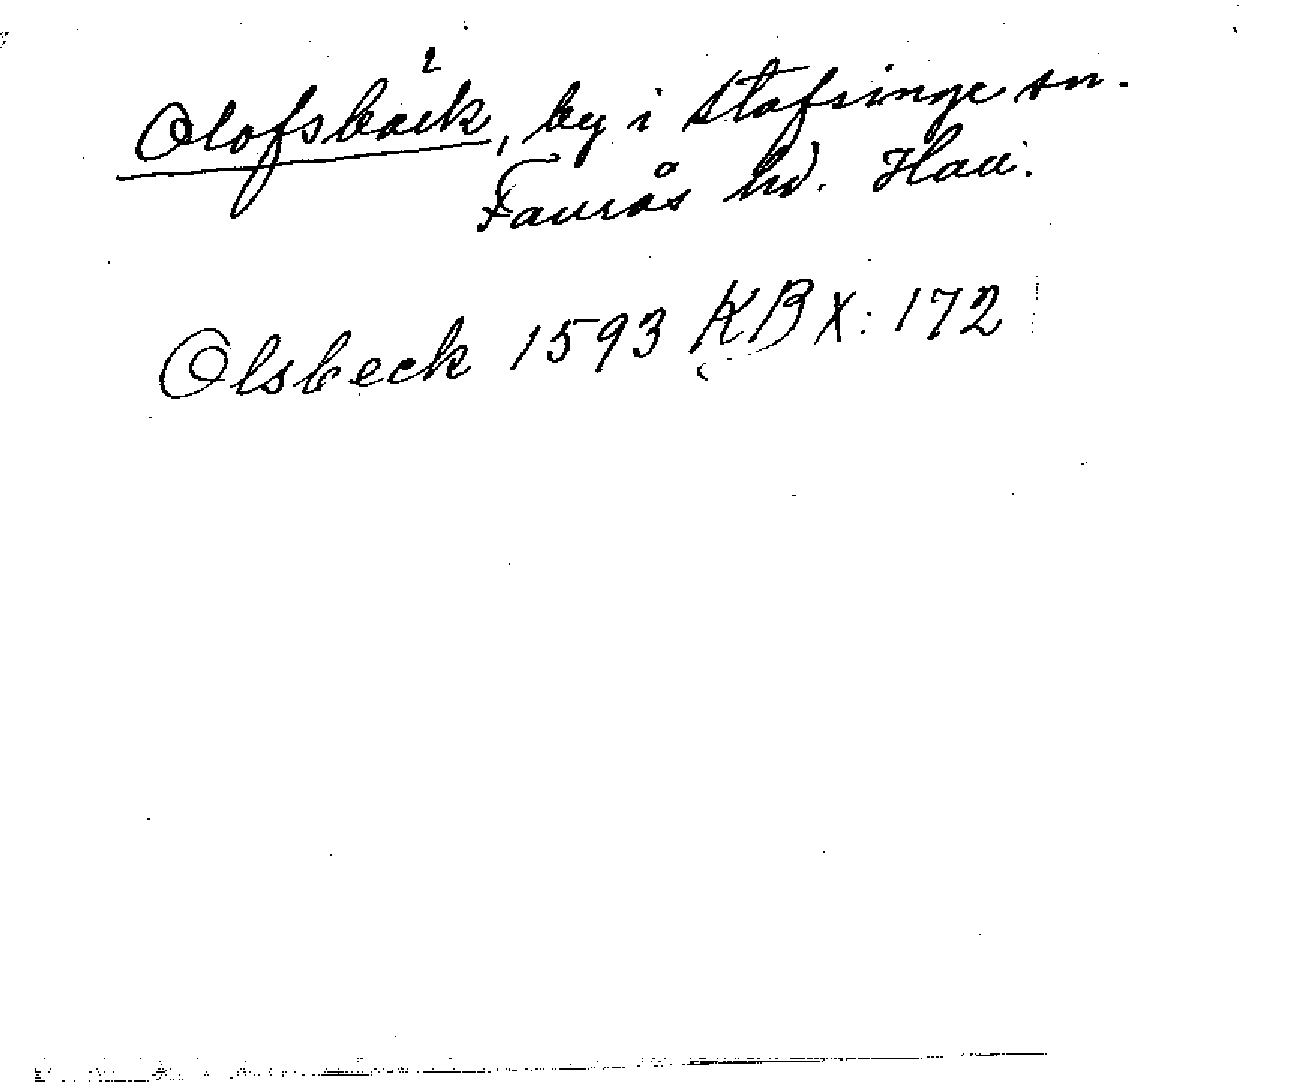 Olofsbäck, by i Stafsinge sn.
Faurås hd. Hall.
Olsbeck 1593 KB X: 172